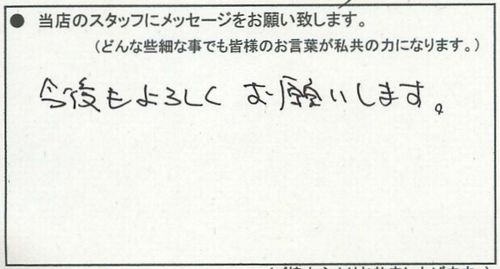 ● 当店のスタッフにメッセージをお願い致します。
（どんな些細な事でも皆様のお言葉が私共の力になります。）
今後もよろしく お願いします。